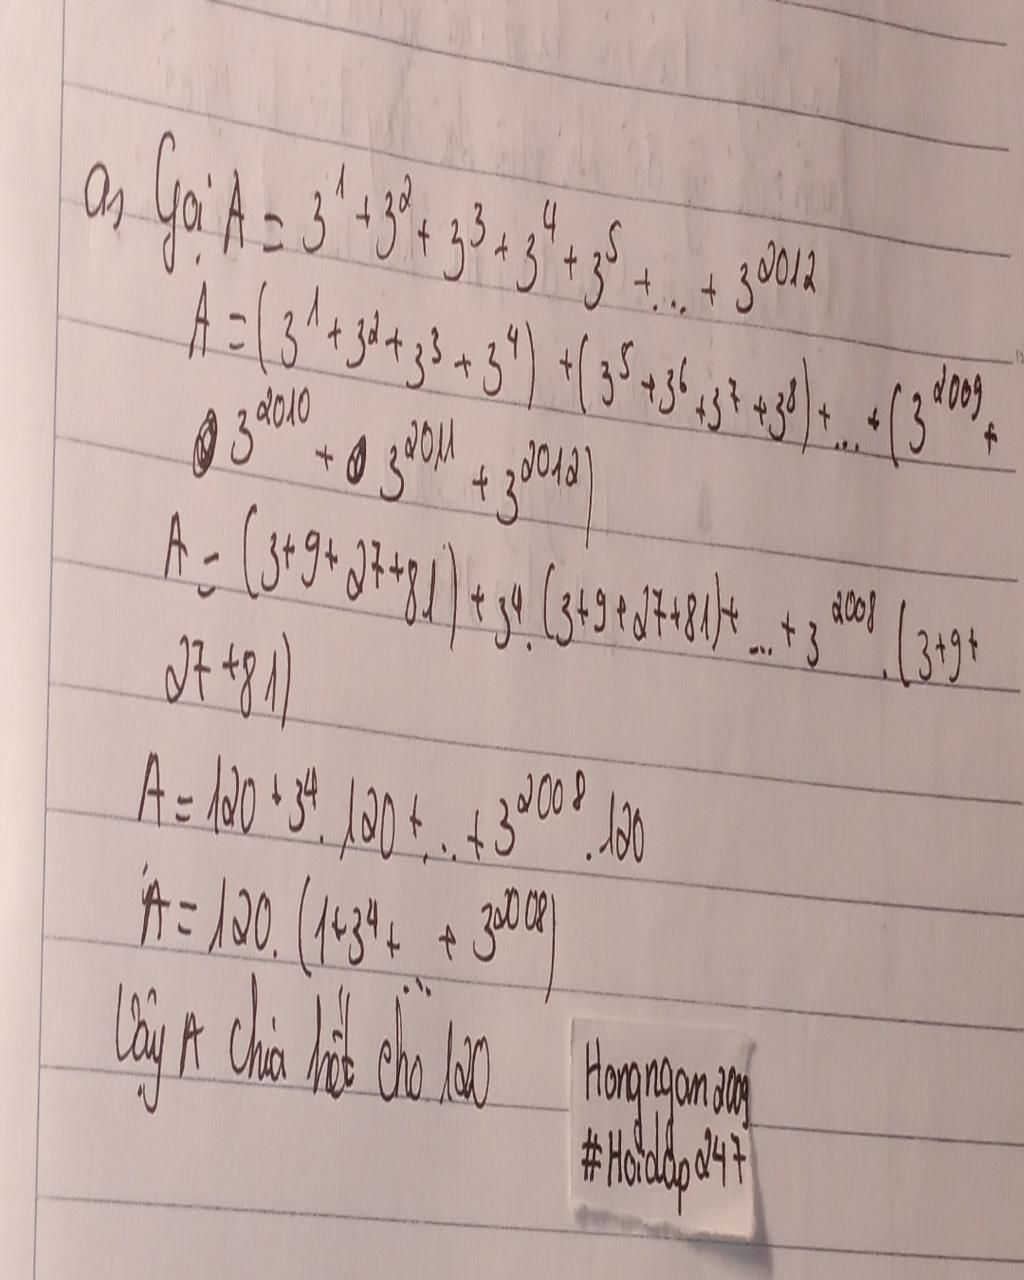 a, Gọi A = 3¹ + 3² + 3³ + 3⁴ + 3⁵ + ... + 3²⁰¹²
A = (3¹ + 3² + 3³ + 3⁴) + (3⁵ + 3⁶ + 3⁷ + 3⁸) + ... + (3²⁰⁰⁹ +
3²⁰¹⁰ + 3²⁰¹¹ + 3²⁰¹²)
A = (3+9+27+81) + 3⁴.(3+9+27+81) + ... + 3²⁰⁰⁸.(3+9+
27+81)
A = 120 + 3⁴.120 + ... + 3²⁰⁰⁸.120
A = 120.(1+3⁴+ ... + 3²⁰⁰⁸)
Vậy A chia hết cho 120
Hongngam2009
#Hoidap247